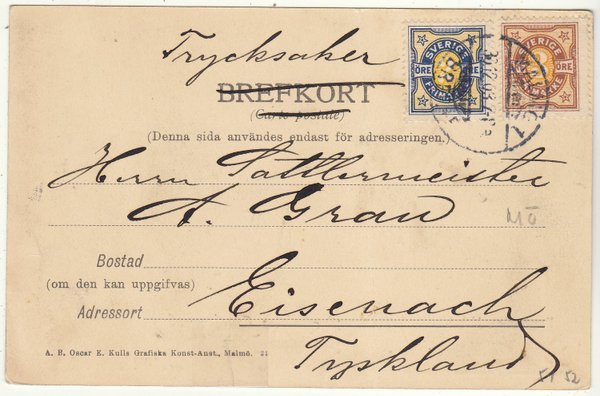 Trycksaker
SVERIGE
ÖRE ÖRE
FRIMÄRKE
SVERIGE
ÖRE
BREFKORT
(Carte postale)
(Denna sida användes endast för adresseringen.)
Herrn Sattlermeister
A. Grau
MÖ
Bostad
(om den kan uppgifvas)
Eisenach
Adressort
Tyskland
A. B. Oscar E. Kulls Grafiska Konst-Anst., Malmö. 21